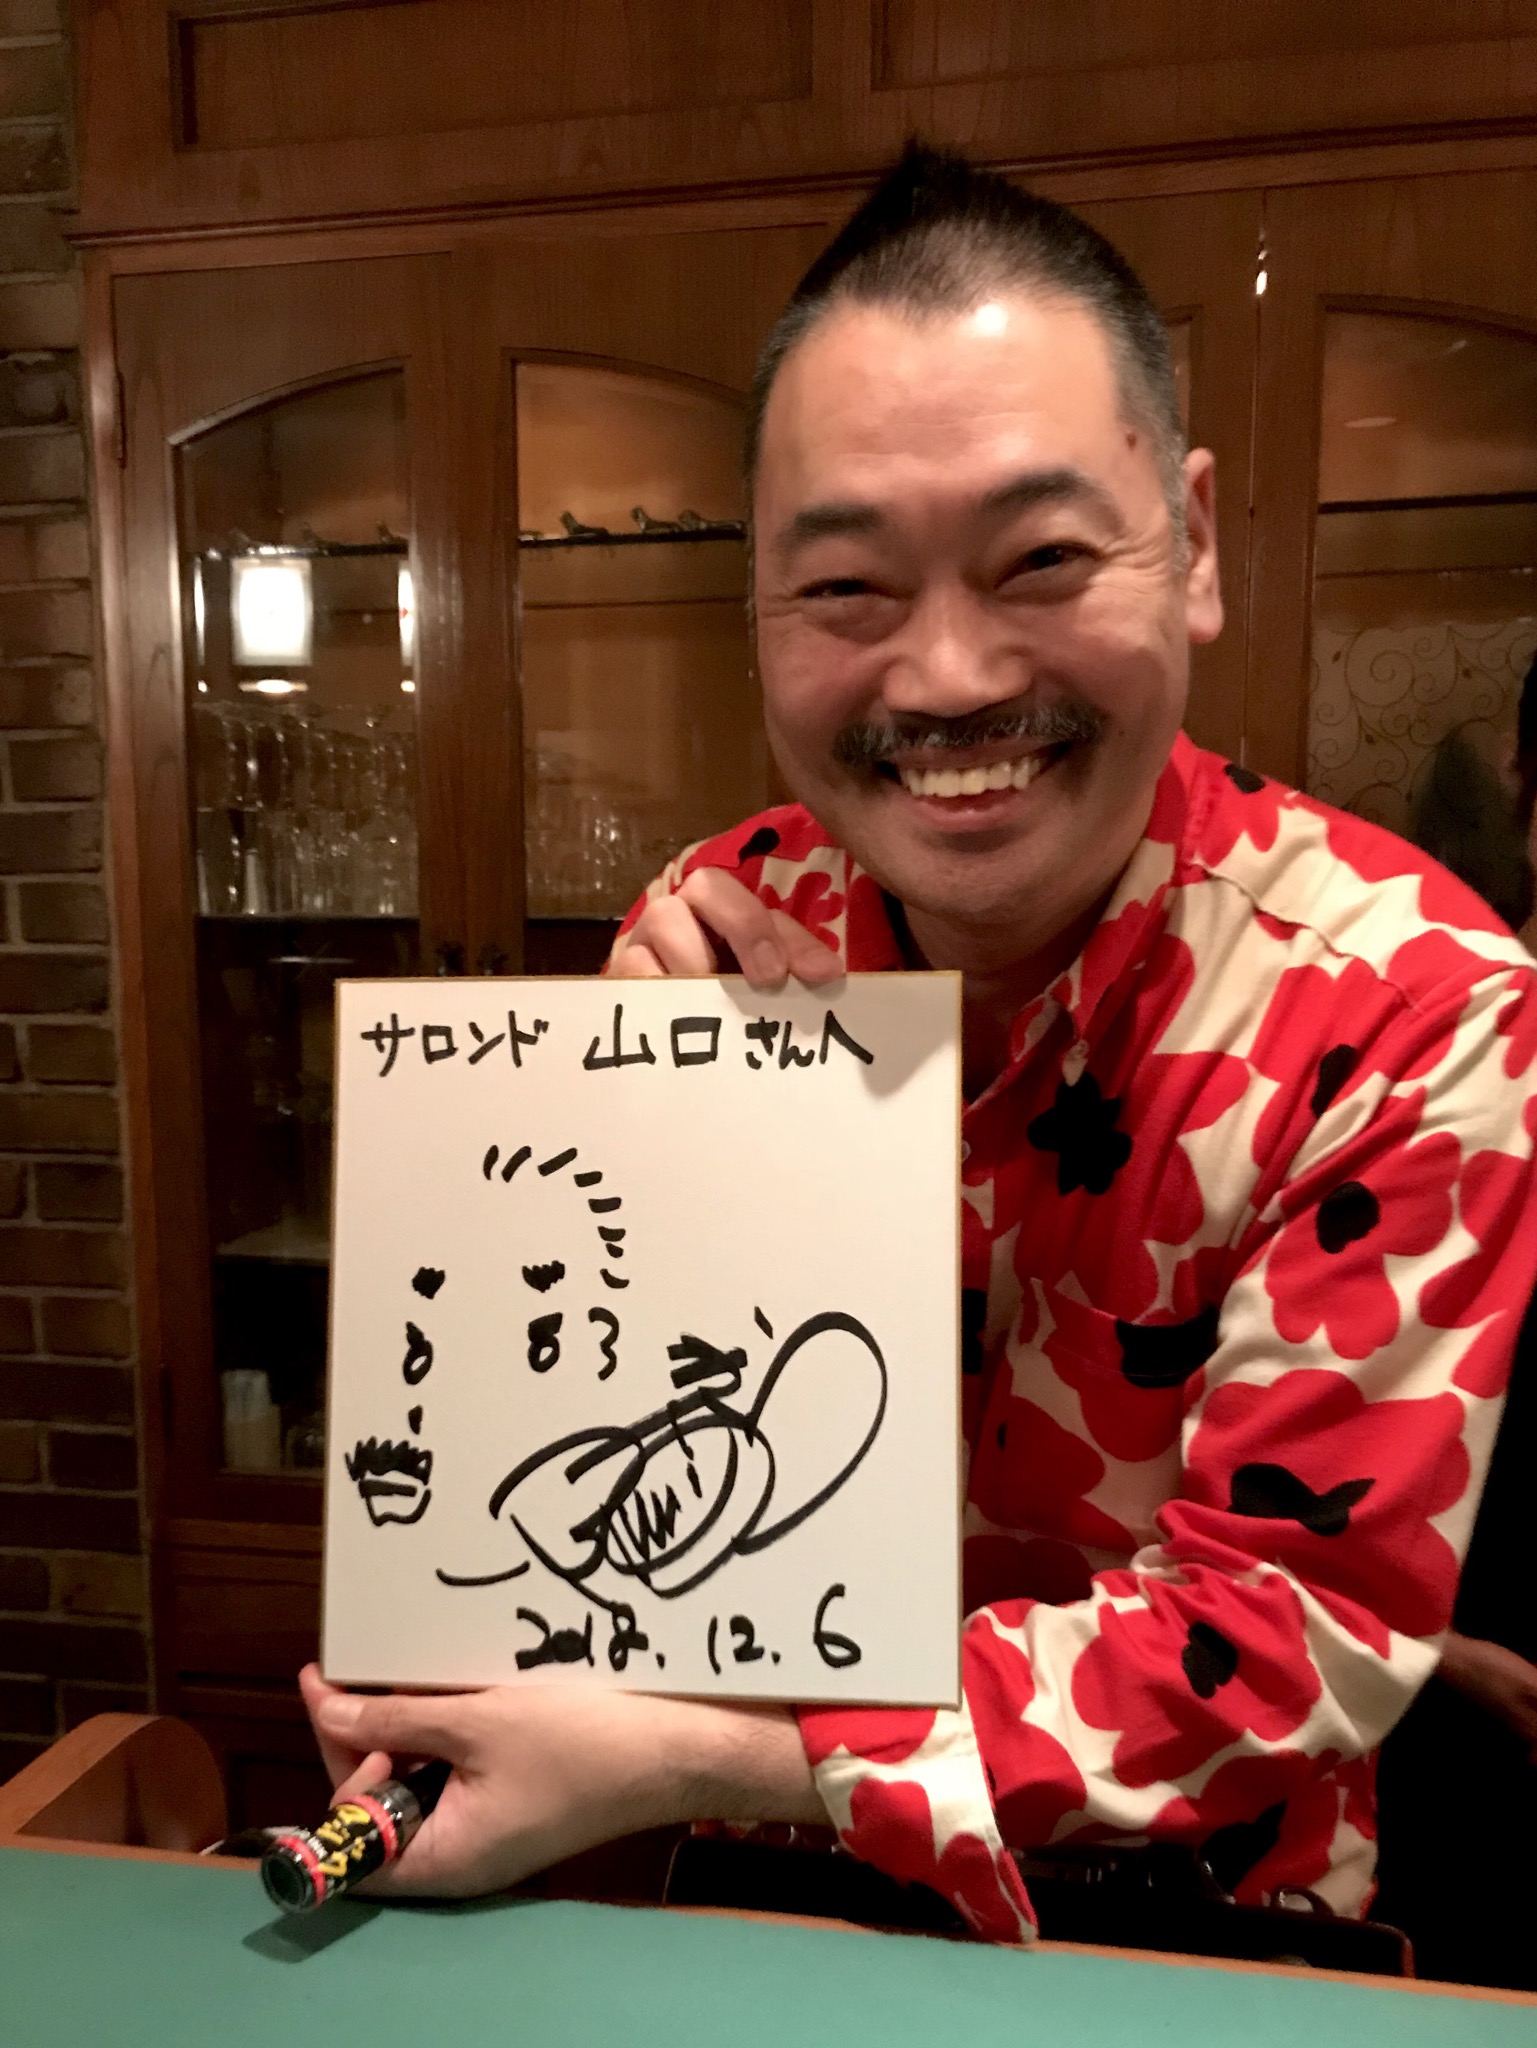 サロンド 山口さんへ
2018.12.6